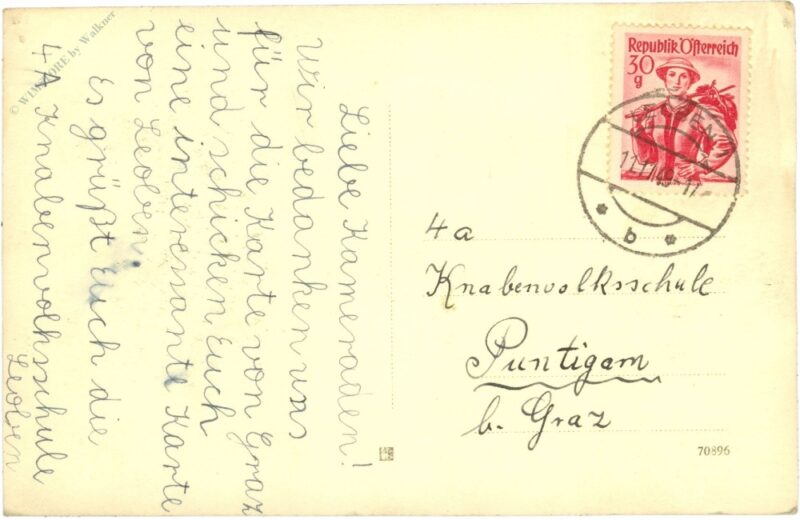 Liebe Kameraden!
Wir bedanken uns
für die Karte von Graz
und schicken Euch
eine interessante Karte
von Leoben
Es grüßt Euch die
4A Knabenvolksschule
Leoben
Republik Österreich
30
g
11.11.49-17
b
4a
Knabenvolksschule
Puntigam
b. Graz
70896
by Walkner